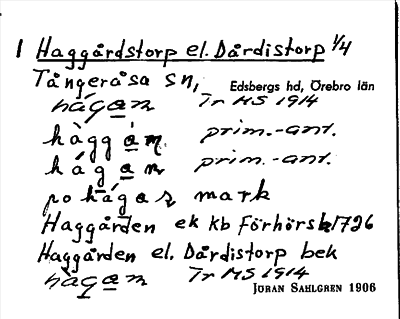 1 Haggårdstorp el. Dårdistorp 1/4
Tångeråsa sn, Edsbergs hd, Örebro län
hágan Tr MS 1914
hàggán prim.-ant.
hágan prim.-ant.
po hágas mark
Haggården ek kb förhörsb 1726
Haggården el. Dårdistorp bek
hágan Tr MS 1914
JÖRAN SAHLGREN 1906